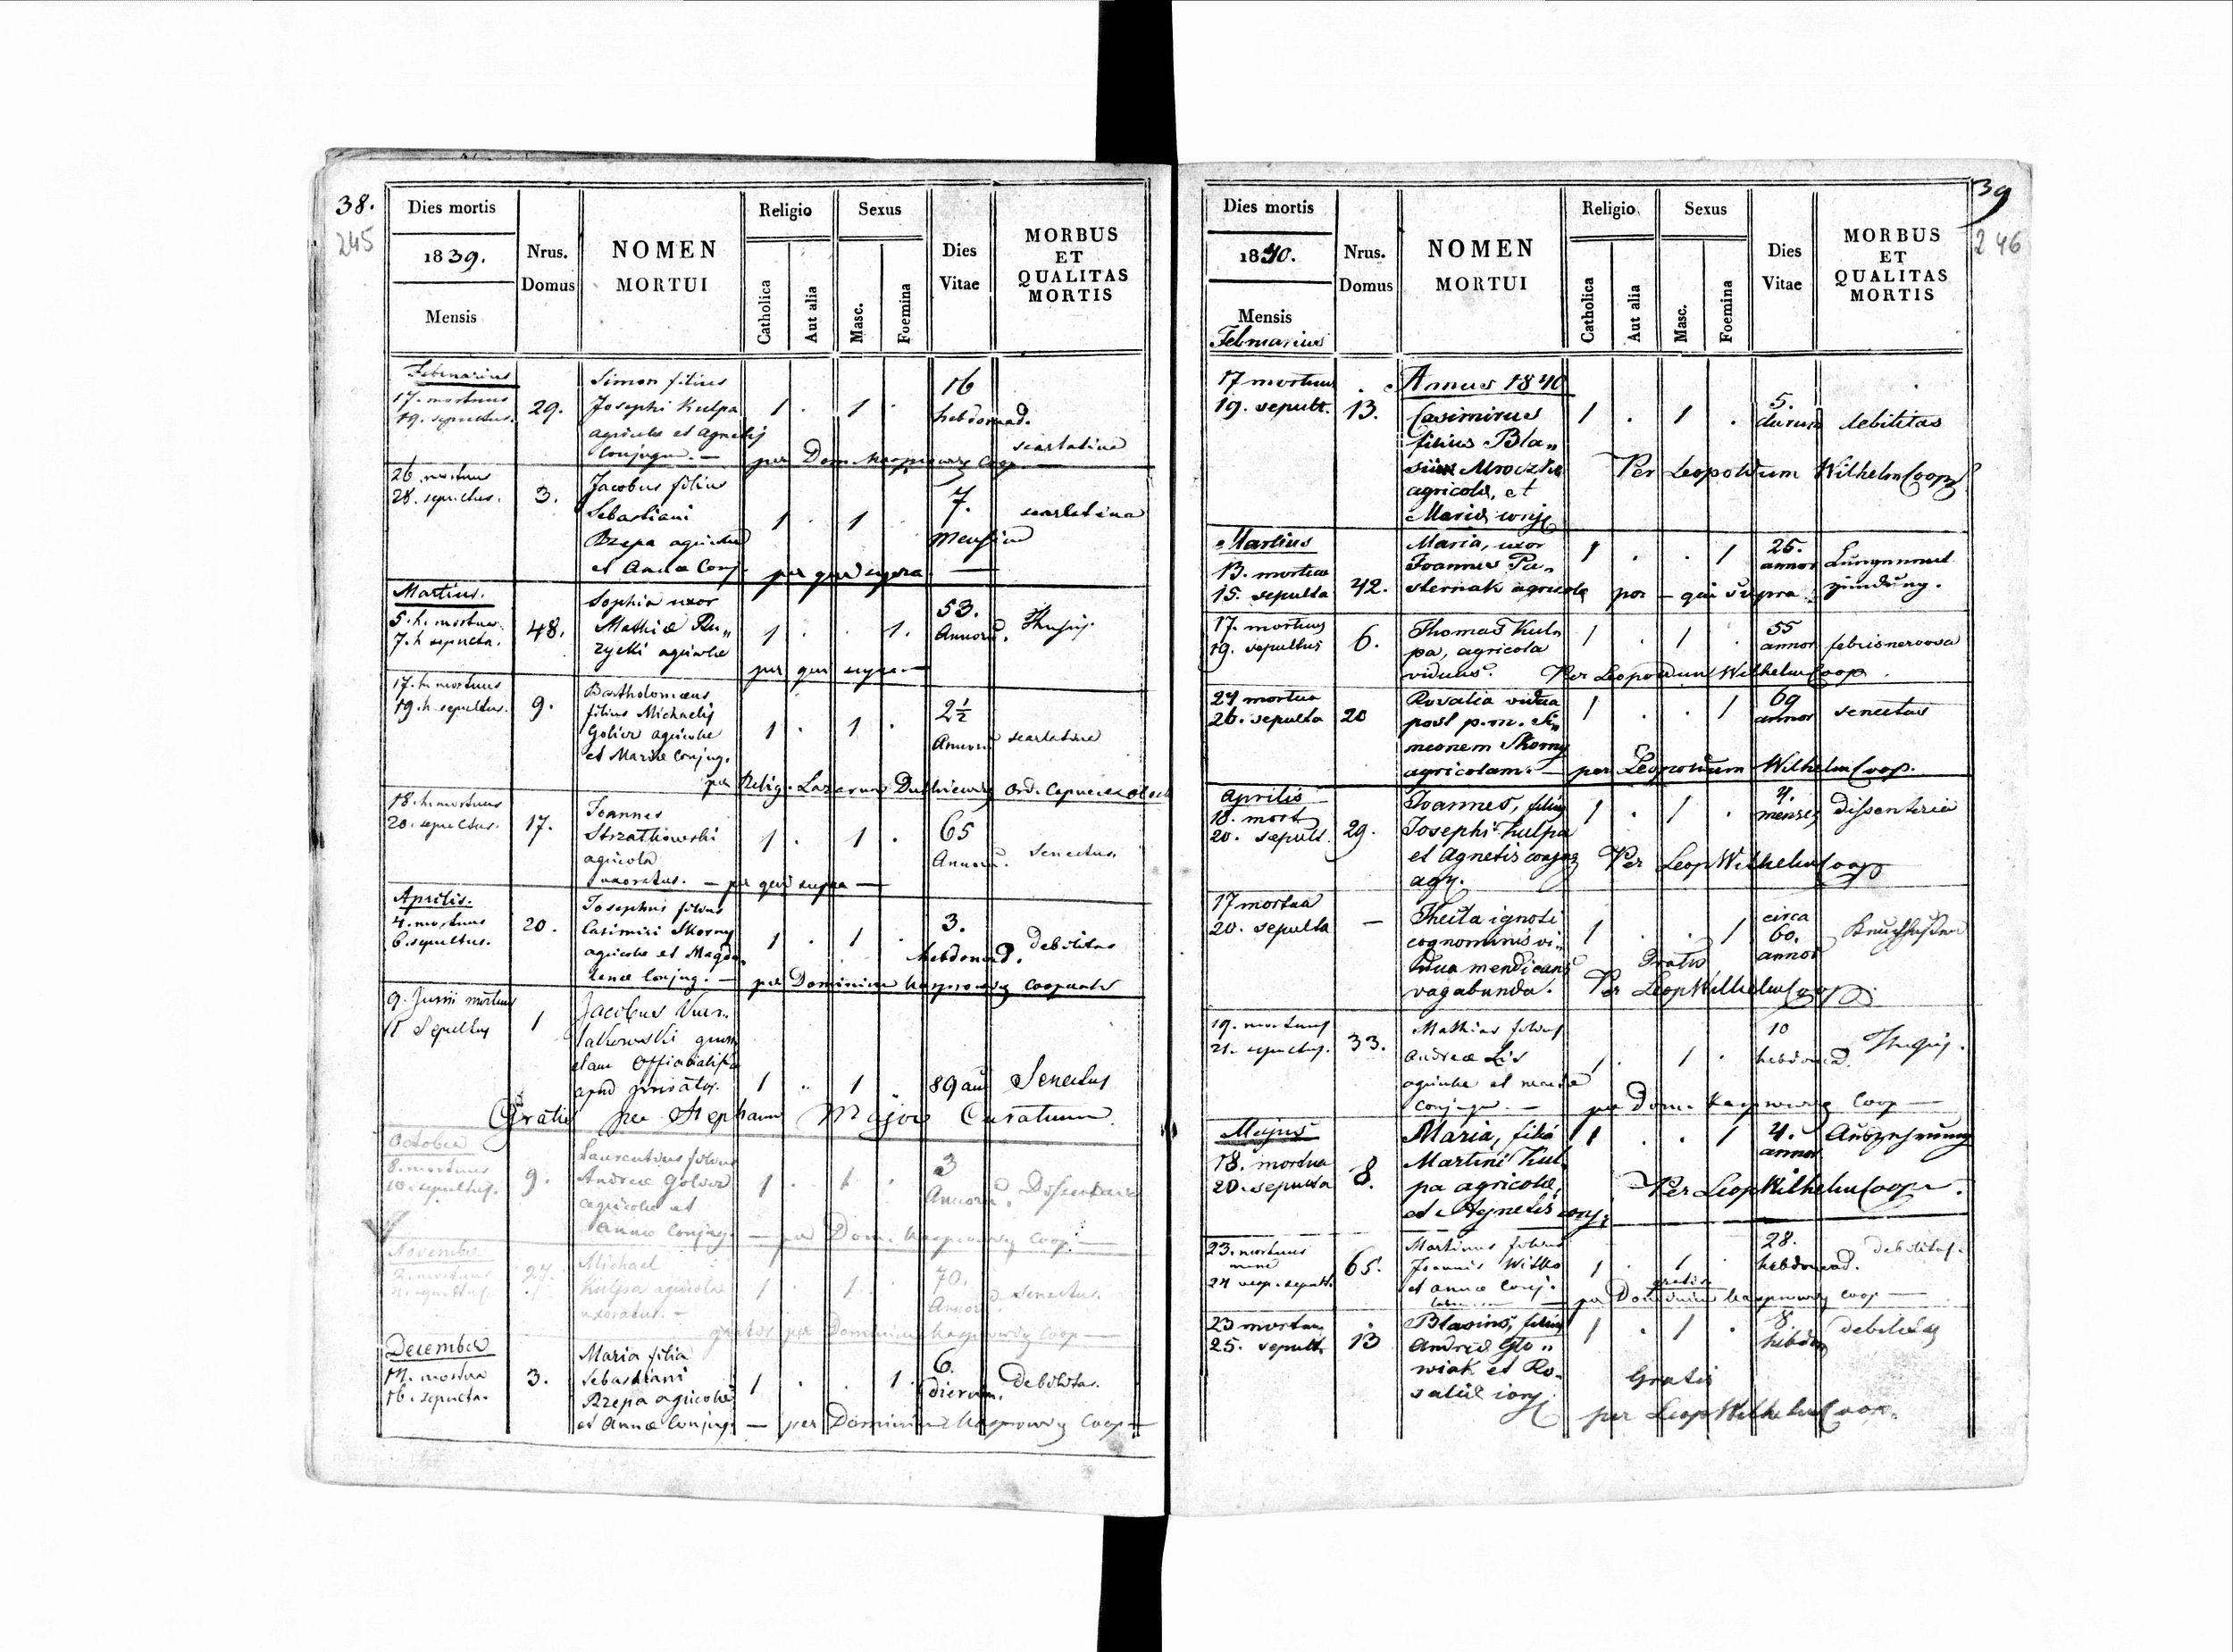 38.
245
Dies mortis
1839.
Mensis
Nrus.
Domus
NOMEN
MORTUI
Religio
Catholica
Aut alia
Sexus
Masc.
Foemina
Dies
Vitae
MORBUS
ET
QUALITAS
MORTIS
Februarius
17. mortuus
19. sepultus.
29.
Simon filius
Josephi Kulpa
agricolae et Agnetis
Conjugum. —
1 . 1 .
16
hebdomad.
scarlatina
per Dom. Kasprowicz Coop
26 mortuus
28. sepultus.
3.
Jacobus filius
Sebastiani
Rzepa agricolae
et Annae Conj.
1 . 1 .
7.
Mensium
scarlatina
per quem supra —
Martius.
5. h. mortua
7. h sepulta.
48.
Sophia uxor
Mathiae Ru„
zycki agricolae
1 . . 1.
53.
Annorum.
per quem supra —
17. h. mortuus
19. h sepultus.
9.
Bartholomaeus
filius Michaelis
Golier agricolae
et Mariae Conjug.
1 . 1 .
2½
Annorum
scarlatina
per Relig. Lazarum Ord. Capuc
18. h. mortuus
20. sepultus.
17.
Joannes
Strzatkowski
agricola
uxoratus. — per quem supra —
1 . 1 .
65
Annorum.
Senectus.
Aprilis.
4. mortuus
6. sepultus.
20.
Josephus filius
Casimiri Skorny
agricolae et Magda„
lenae Conjug. —
1 . 1 .
3.
hebdomad.
debilitas
per Dominicum Kasprowicz Cooperator
9. Junii mortuus
11 Sepultus
1
Jacobus
quon
dam Officialista
apud privatos.
1 .. 1
89 an
Senectus
Gratis per Stephanum Major Curatum.
October
8. mortuus
10. sepultus.
9.
Laurentius filius
Andreae Golier
agricolae et
Annae Conjug.
1 . 1 .
3
Annorum.
Dissenteria
— per Dom. Kasprowicz Coop. —
November
2. mortuus
sepultus.
27.
Michael
Kulpa agricola
uxoratus. —
1 . 1 .
70.
Annorum
senectus.
gratis per Dominicum Kasprowicz Coop —
December
14. mortua
16. sepulta.
3.
Maria filia
Sebastiani
Rzepa agricolae
et Annae Conjug.
1 . . 1.
6.
dierum.
debilitas.
— per Dominicum Kasprowicz Coop —
39
246
Dies mortis
1840.
Mensis
Februarius
Nrus.
Domus
NOMEN
MORTUI
Religio
Catholica
Aut alia
Sexus
Masc.
Foemina
Dies
Vitae
MORBUS
ET
QUALITAS
MORTIS
Annus 1840
17 mortuus
19. sepult.
13.
Casimirus
filius Bla„
sii Mroczka
agricolae, et
Mariae conj
1 . 1 .
5.
dierum
debilitas
Per Leopoldum Wilhelm Coop
Martius
13. mortua
15. sepulta
42.
Maria, uxor
Joannis Pa„
sternak agricola
1 . . 1
26.
annor
Lungenent
zündung.
per — qui supra
17. mortuus
19. sepultus
6.
Thomas Kul„
pa, agricola
viduus.
1 . 1 .
55
annor
febris nervosa
Per Leopoldum Wilhelm Coop.
24 mortua
26. sepulta
20
Rosalia vidua
post p. m. Si„
meonem Skorny
agricolam. —
1 . . 1
69
annor
senectus
per Leopoldum Wilhelm Coop.
Aprilis
18. mort
20. sepult.
29.
Joannes, filius
Josephi Kulpa
et Agnetis conjug
agr.
1 . 1 .
4.
menses
dissenteria
Per Leop Wilhelm Coop
17 mortua
20. sepulta
—
Thecla ignoti
cognominis vi„
dua mendicans
vagabunda.
1 . . 1
circa
60.
annor
Gratis
Per Leop Wilhelm Coop
19. mortuus
21. sepultus.
33.
Mathias filius
Andreae Lis
agricolae et Mariae
conjugum. —
1. . 1 .
10
hebdomad.
per Dom. Kasprowicz Coop —
Majus
18. mortua
20. sepulta
8.
Maria, filia
Martini Kul
pa agricolae,
et Agnetis conj.
1 . . 1
4.
annor
Auszehrung
Per Leop Wilhelm Coop.
23. mortuus
mane
24 vesp. sepult.
65.
Martinus filius
Joannis Witko
et Annae Conj.
1 . 1 .
28.
hebdomad.
debilitas.
gratis
— per Dominicum Kasprowicz Coop —
23 mortuus
25. sepult.
13
Blasius, filius
Andreae Glo„
wiak et Ro„
saliae conj
1 . 1 .
8.
hebdom
debilitas
Gratis
per Leop Wilhelm Coop.